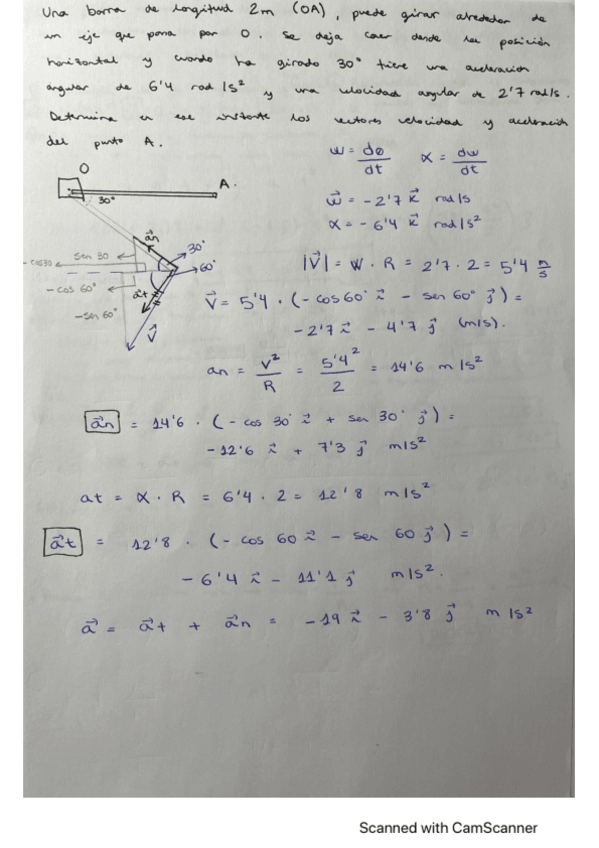 Una barra de longitud 2m (OA), puede girar alrededor de
un eje que pasa por O. Se deja caer desde la posición
horizontal y cuando ha girado 30° tiene una aceleración
angular de 6'4 rad/s² y una velocidad angular de 2'7 rad/s.
Determina en ese instante los vectores velocidad y aceleración
del punto A.
w = dø/dt α = dw/dt
O
A.
30°
w⃗ = -2'7 k⃗ rad/s
α = -6'4 k⃗ rad/s²
a⃗n
30°
sen 30
-cos30
60°
|V⃗| = W · R = 2'7 · 2 = 5'4 m/s
-cos 60°
a⃗t
-sen 60°
V⃗
V⃗ = 5'4 · (-cos60° i⃗ - sen 60° j⃗) =
-2'7 i⃗ - 4'7 j⃗ (m/s).
an = v²/R = 5'4²/2 = 14'6 m/s²
a⃗n = 14'6 · (-cos 30° i⃗ + sen 30° j⃗) =
-12'6 i⃗ + 7'3 j⃗ m/s²
at = α · R = 6'4 · 2 = 12'8 m/s²
a⃗t = 12'8 · (-cos 60 i⃗ - sen 60 j⃗) =
-6'4 i⃗ - 11'1 j⃗ m/s².
a⃗ = a⃗t + a⃗n = -19 i⃗ - 3'8 j⃗ m/s²
Scanned with CamScanner